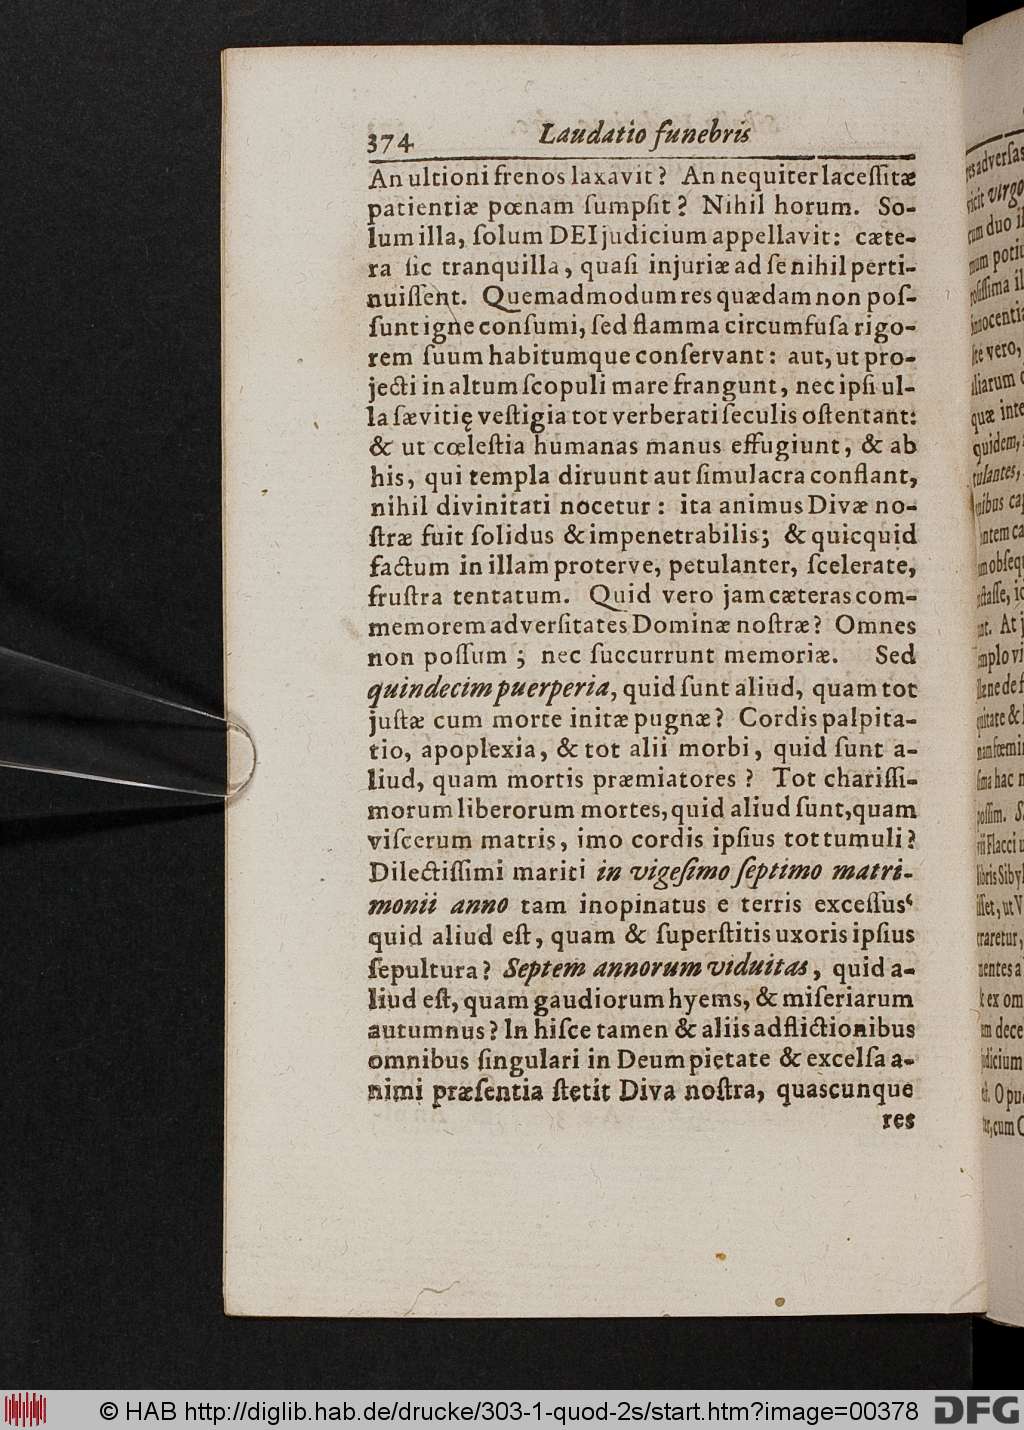 374 Laudatio funebris
An ultioni frenos laxavit? An nequiter lacessitæ
patientiæ pœnam sumpsit? Nihil horum. So-
lum illa, solum DEI judicium appellavit: cæte-
ra sic tranquilla, quasi injuriæ ad se nihil perti-
nuissent. Quemadmodum res quædam non pos-
sunt igne consumi, sed flamma circumfusa rigo-
rem suum habitumque conservant: aut, ut pro-
jecti in altum scopuli mare frangunt, nec ipsi ul-
la sævitię vestigia tot verberati seculis ostentant:
& ut cœlestia humanas manus effugiunt, & ab
his, qui templa diruunt aut simulacra conflant,
nihil divinitati nocetur: ita animus Divæ no-
stræ fuit solidus & impenetrabilis; & quicquid
factum in illam proterve, petulanter, scelerate,
frustra tentatum. Quid vero jam cæteras com-
memorem adversitates Dominæ nostræ? Omnes
non possum; nec succurrunt memoriæ. Sed
quindecim puerperia, quid sunt aliud, quam tot
justæ cum morte initæ pugnæ? Cordis palpita-
tio, apoplexia, & tot alii morbi, quid sunt a-
liud, quam mortis præmiatores? Tot charissi-
morum liberorum mortes, quid aliud sunt, quam
viscerum matris, imo cordis ipsius tot tumuli?
Dilectissimi mariti in vigesimo septimo matri-
monii anno tam inopinatus e terris excessus
quid aliud est, quam & superstitis uxoris ipsius
sepultura? Septem annorum viduitas, quid a-
liud est, quam gaudiorum hyems, & miseriarum
autumnus? In hisce tamen & aliis adflictionibus
omnibus singulari in Deum pietate & excelsa a-
nimi præsentia stetit Diva nostra, quascunque
res
© HAB http://diglib.hab.de/drucke/303-1-quod-2s/start.htm?image=00378 DFG